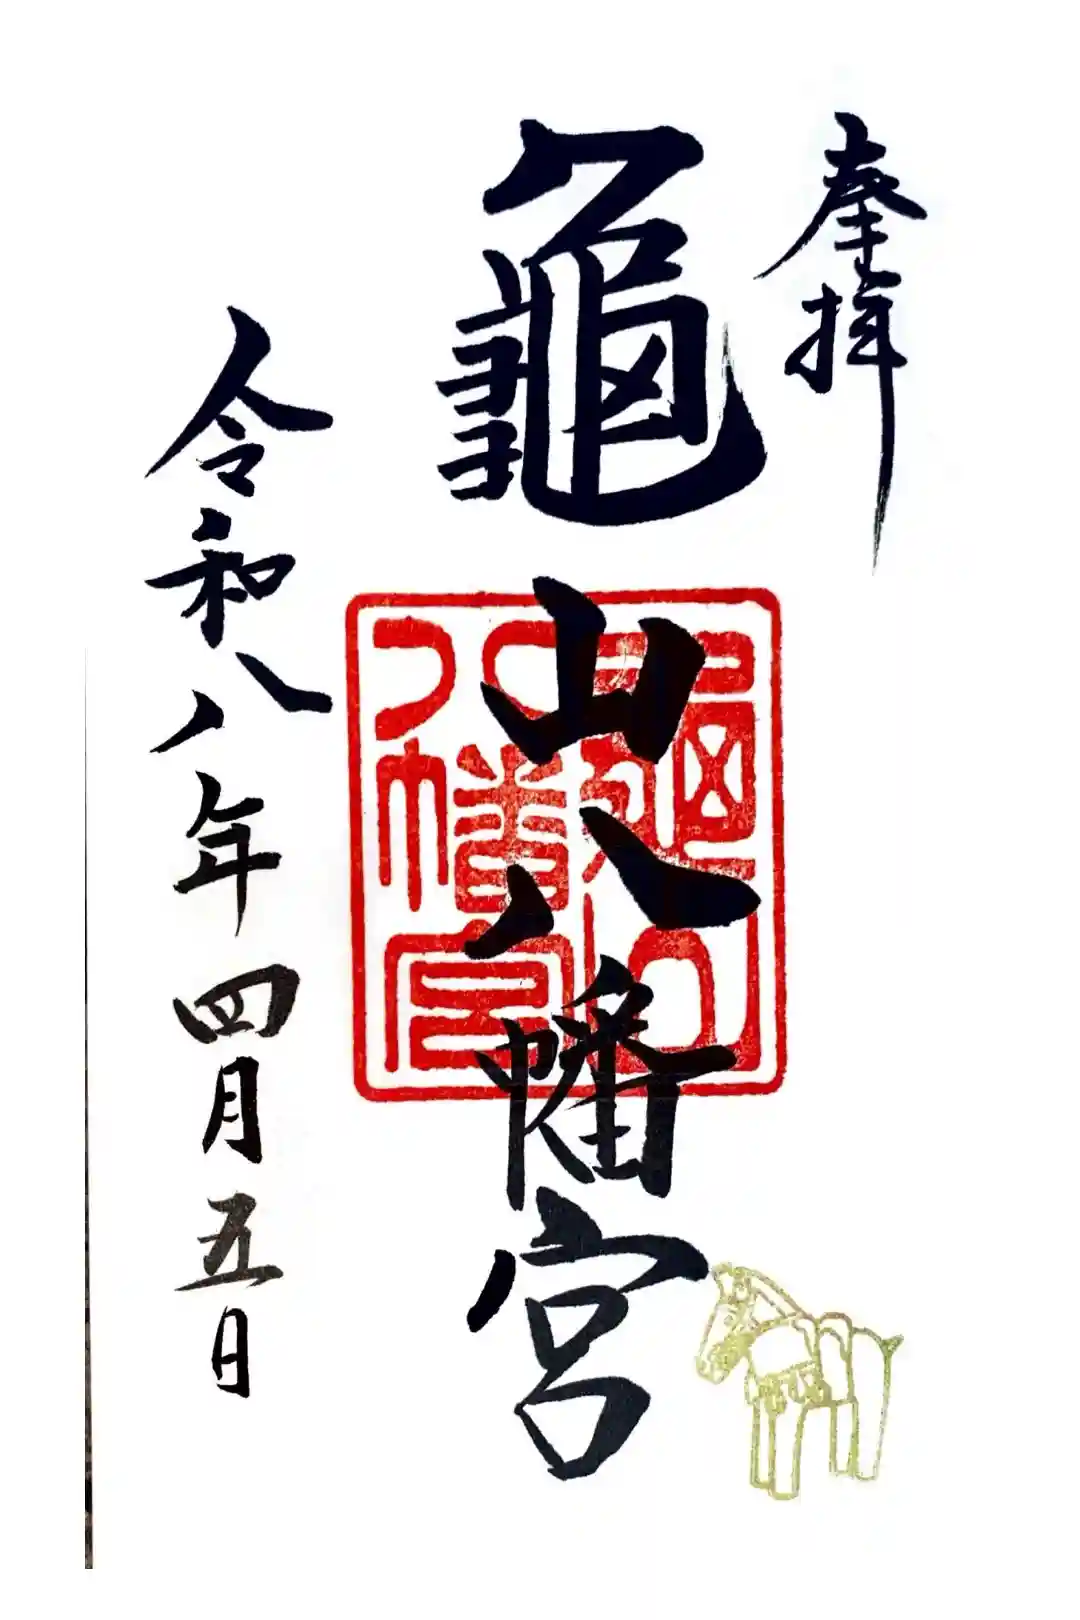 奉拝
龜山八幡宮
龜山
八幡宮
令和八年四月五日